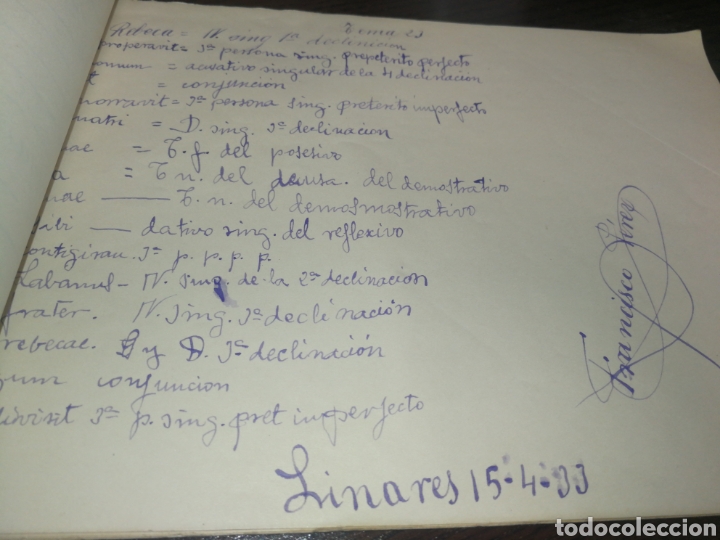 Tema 23
Rebeca = N. sing 1ª declinacion
properavit = 3ª persona sing. preterito perfecto
= acusativo singular de la 4 declinación
t = conjunción
narravit = 3ª persona sing. preterito imperfecto
matri = D. sing. 3ª declinacion
uae = T. f del posesivo
a = T n. del del demostrativo
uae — T. n. del demosmostrativo
ibi — dativo sing. del reflexivo
3ª p. p. p. p.
Labanus - N. sing. de la 2ª declinación
frater. N. sing. 3ª declinación
rebecae. G y D. 3ª declinación
um conjuncion
3ª p. sing. pret imperfecto
Linares 15-4-33
Francisco
todocoleccion